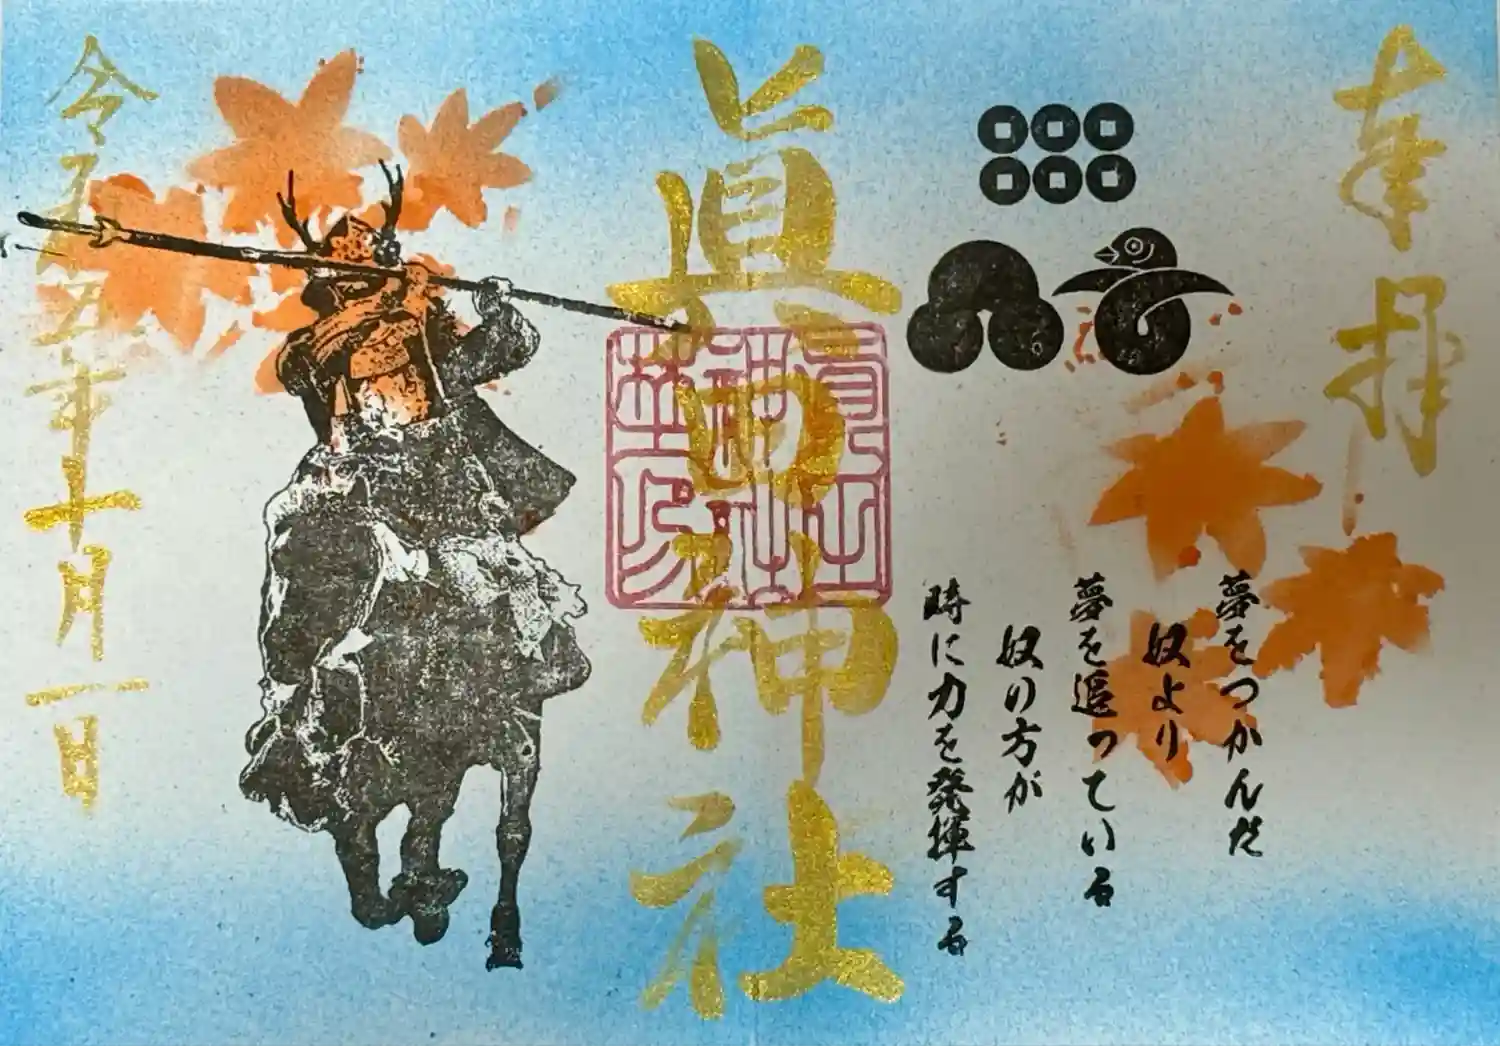 奉拝
夢をつかんだ
奴より
夢を追っている
奴の方が
時に力を発揮する
眞田神社
眞田神社璽印
令和五年十月一日